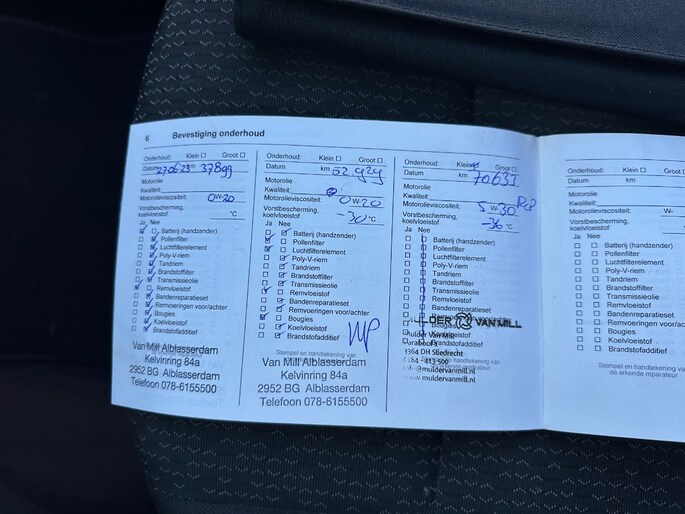 6 Bevestiging onderhoud
Onderhoud: Klein Groot
Datum 27-06-23 km 37899
Motorolie
Kwaliteit:
Motorolieviscositeit: 0W-20
Vorstbescherming,
koelvloeistof °C
Ja Nee
Batterij (handzender)
Pollenfilter
Luchtfilterelement
Poly-V-riem
Tandriem
Brandstoffilter
Transmissieolie
Remvloeistof
Bandenreparatieset
Remvoeringen voor/achter
Bougies
Koelvloeistof
Brandstofadditief
Van Mill Alblasserdam
Kelvinring 84a
2952 BG Alblasserdam
Telefoon 078-6155500
Onderhoud: Klein Groot
Datum km 52.929
Motorolie
Kwaliteit:
Motorolieviscositeit: 0W-20
Vorstbescherming,
koelvloeistof -30 °C
Ja Nee
Batterij (handzender)
Pollenfilter
Luchtfilterelement
Poly-V-riem
Tandriem
Brandstoffilter
Transmissieolie
Remvloeistof
Bandenreparatieset
Remvoeringen voor/achter
Bougies
Koelvloeistof
Brandstofadditief
Stempel en handtekening van
Van Mill Alblasserdam
Kelvinring 84a
2952 BG Alblasserdam
Telefoon 078-6155500
Onderhoud: Klein Groot
Datum km 70.631
Motorolie
Kwaliteit:
Motorolieviscositeit: 5W-30
Vorstbescherming,
koelvloeistof -36 °C
Ja Nee
Batterij (handzender)
Pollenfilter
Luchtfilterelement
Poly-V-riem
Tandriem
Brandstoffilter
Transmissieolie
Remvloeistof
Bandenreparatieset
VAN MILL
Bougies
Koelvloeistof
Brandstofadditief
Mulder Van Mill
3364 DH Sliedrecht
0184 - 413 500
@muldervanmill.nl
muldervanmill.nl
Onderhoud: Klein
Datum km
Motorolie
Kwaliteit:
Motorolieviscositeit: W-
Vorstbescherming,
koelvloeistof
Ja Nee
Batterij (handzender)
Pollenfilter
Luchtfilterelement
Poly-V-riem
Tandriem
Brandstoffilter
Transmissieolie
Remvloeistof
Bandenreparatieset
Remvoeringen voor/achter
Bougies
Koelvloeistof
Brandstofadditief
Stempel en handtekening van
de erkende reparateur